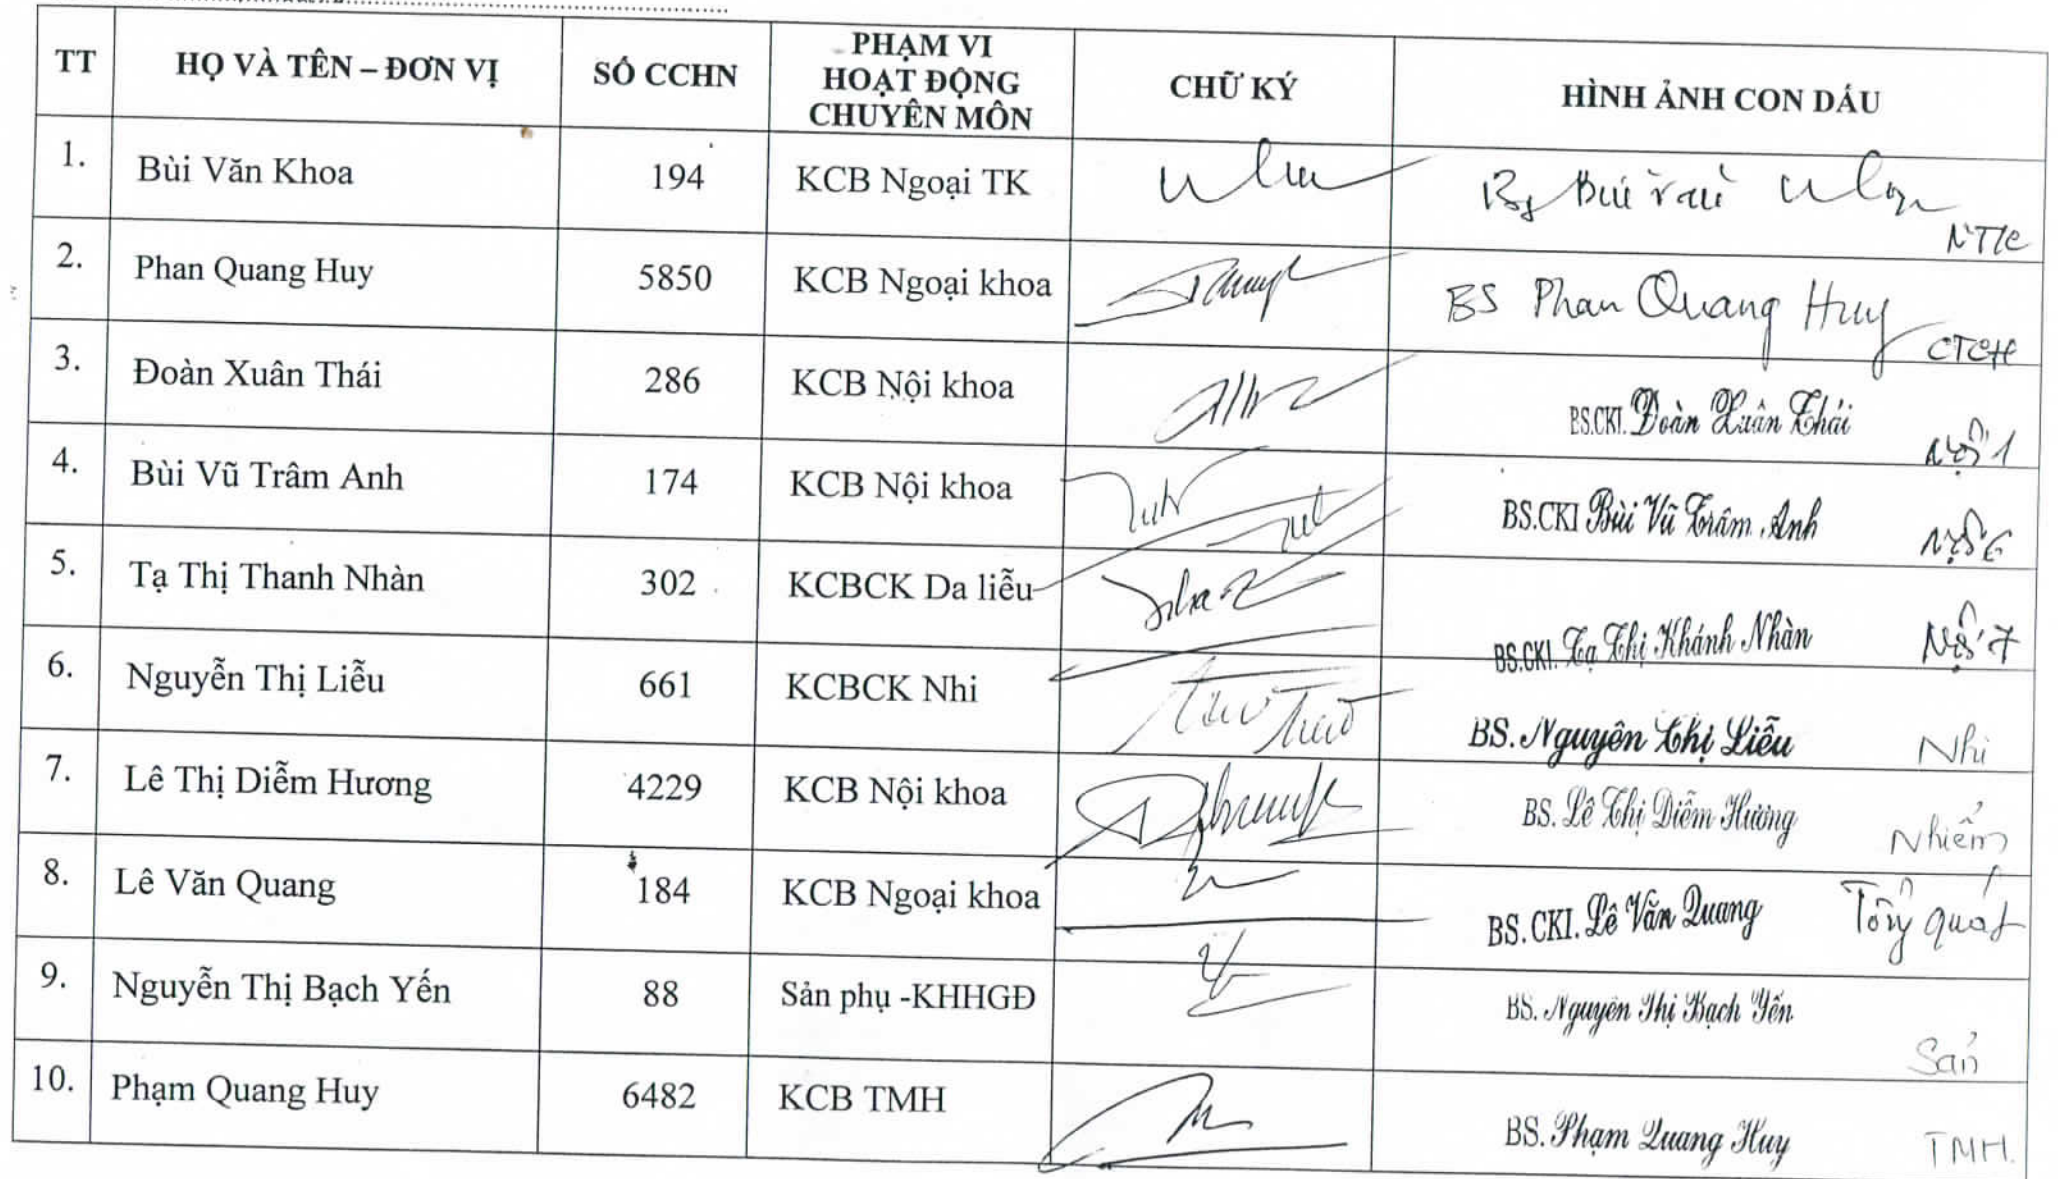 TT
HỌ VÀ TÊN – ĐƠN VỊ
SỐ CCHN
PHẠM VI
HOẠT ĐỘNG
CHUYÊN MÔN
CHỮ KÝ
HÌNH ẢNH CON DẤU
1. Bùi Văn Khoa 194 KCB Ngoại TK
NTK
2. Phan Quang Huy 5850 KCB Ngoại khoa BS Phan Quang Huy
CTCH
3. Đoàn Xuân Thái 286 KCB Nội khoa BS.CKI. Đoàn Xuân Thái
Nội 1
4. Bùi Vũ Trâm Anh 174 KCB Nội khoa BS.CKI Bùi Vũ Trâm Anh
Nội 6
5. Tạ Thị Thanh Nhàn 302 KCBCK Da liễu BS.CKI. Tạ Thị Khánh Nhàn Nội 7
6. Nguyễn Thị Liễu 661 KCBCK Nhi BS. Nguyễn Thị Liễu Nhi
7. Lê Thị Diễm Hương 4229 KCB Nội khoa BS. Lê Thị Diễm Hương Nhiễm
8. Lê Văn Quang 184 KCB Ngoại khoa BS.CKI. Lê Văn Quang Tổng quát
9. Nguyễn Thị Bạch Yến 88 Sản phụ -KHHGĐ BS. Nguyễn Thị Bạch Yến
Sản
10. Phạm Quang Huy 6482 KCB TMH BS. Phạm Quang Huy TMH.